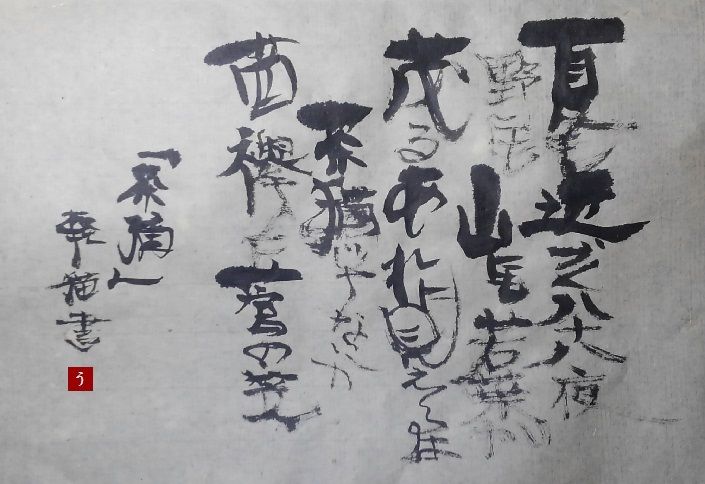 夏も近づく八十八夜
野にも山にも若葉が
茂るあれに見えるは
茶摘ぢゃないか
茜襷に菅の笠
「茶摘」
書
う